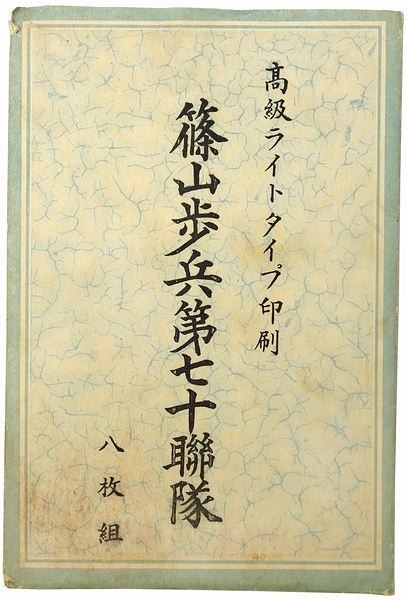 高級ライトタイプ印刷
篠山歩兵第七十聯隊
八枚組